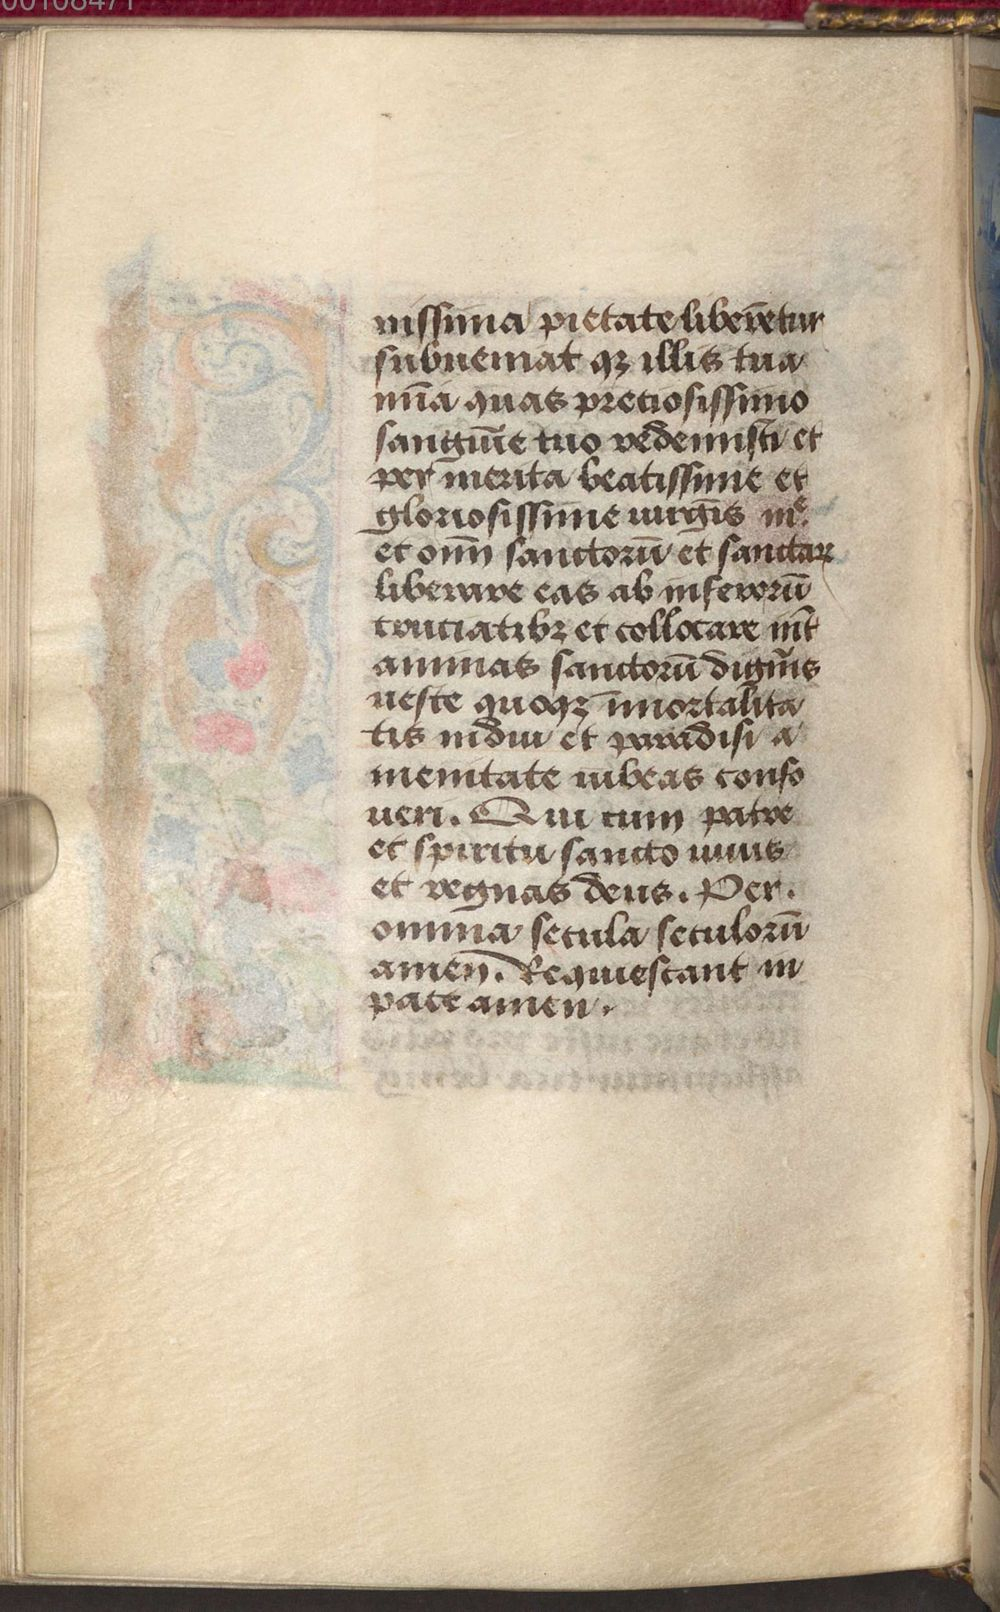 00108471
nissima pietate liberetur
subueniat qꝫ illis tua
mīa quas preciosissimo
sanguīe tuo redemisti et
per merita beatissime et
gloriosissime uirgīs mͤ.
et om̄ sanctorū et sanctaꝝ
liberare eas ab inferorū
cruciatibꝫ et collocare int̄
animas sanctorū digneris
ueste quoqꝫ īmortalita
tis indui et paradisi a
menitate iubeas confo
ueri. Qui cum patre
et spiritu sancto uiuis
et regnas deus. Per.
omnia secula seculorū
amen. Requiescant in
pace amen.